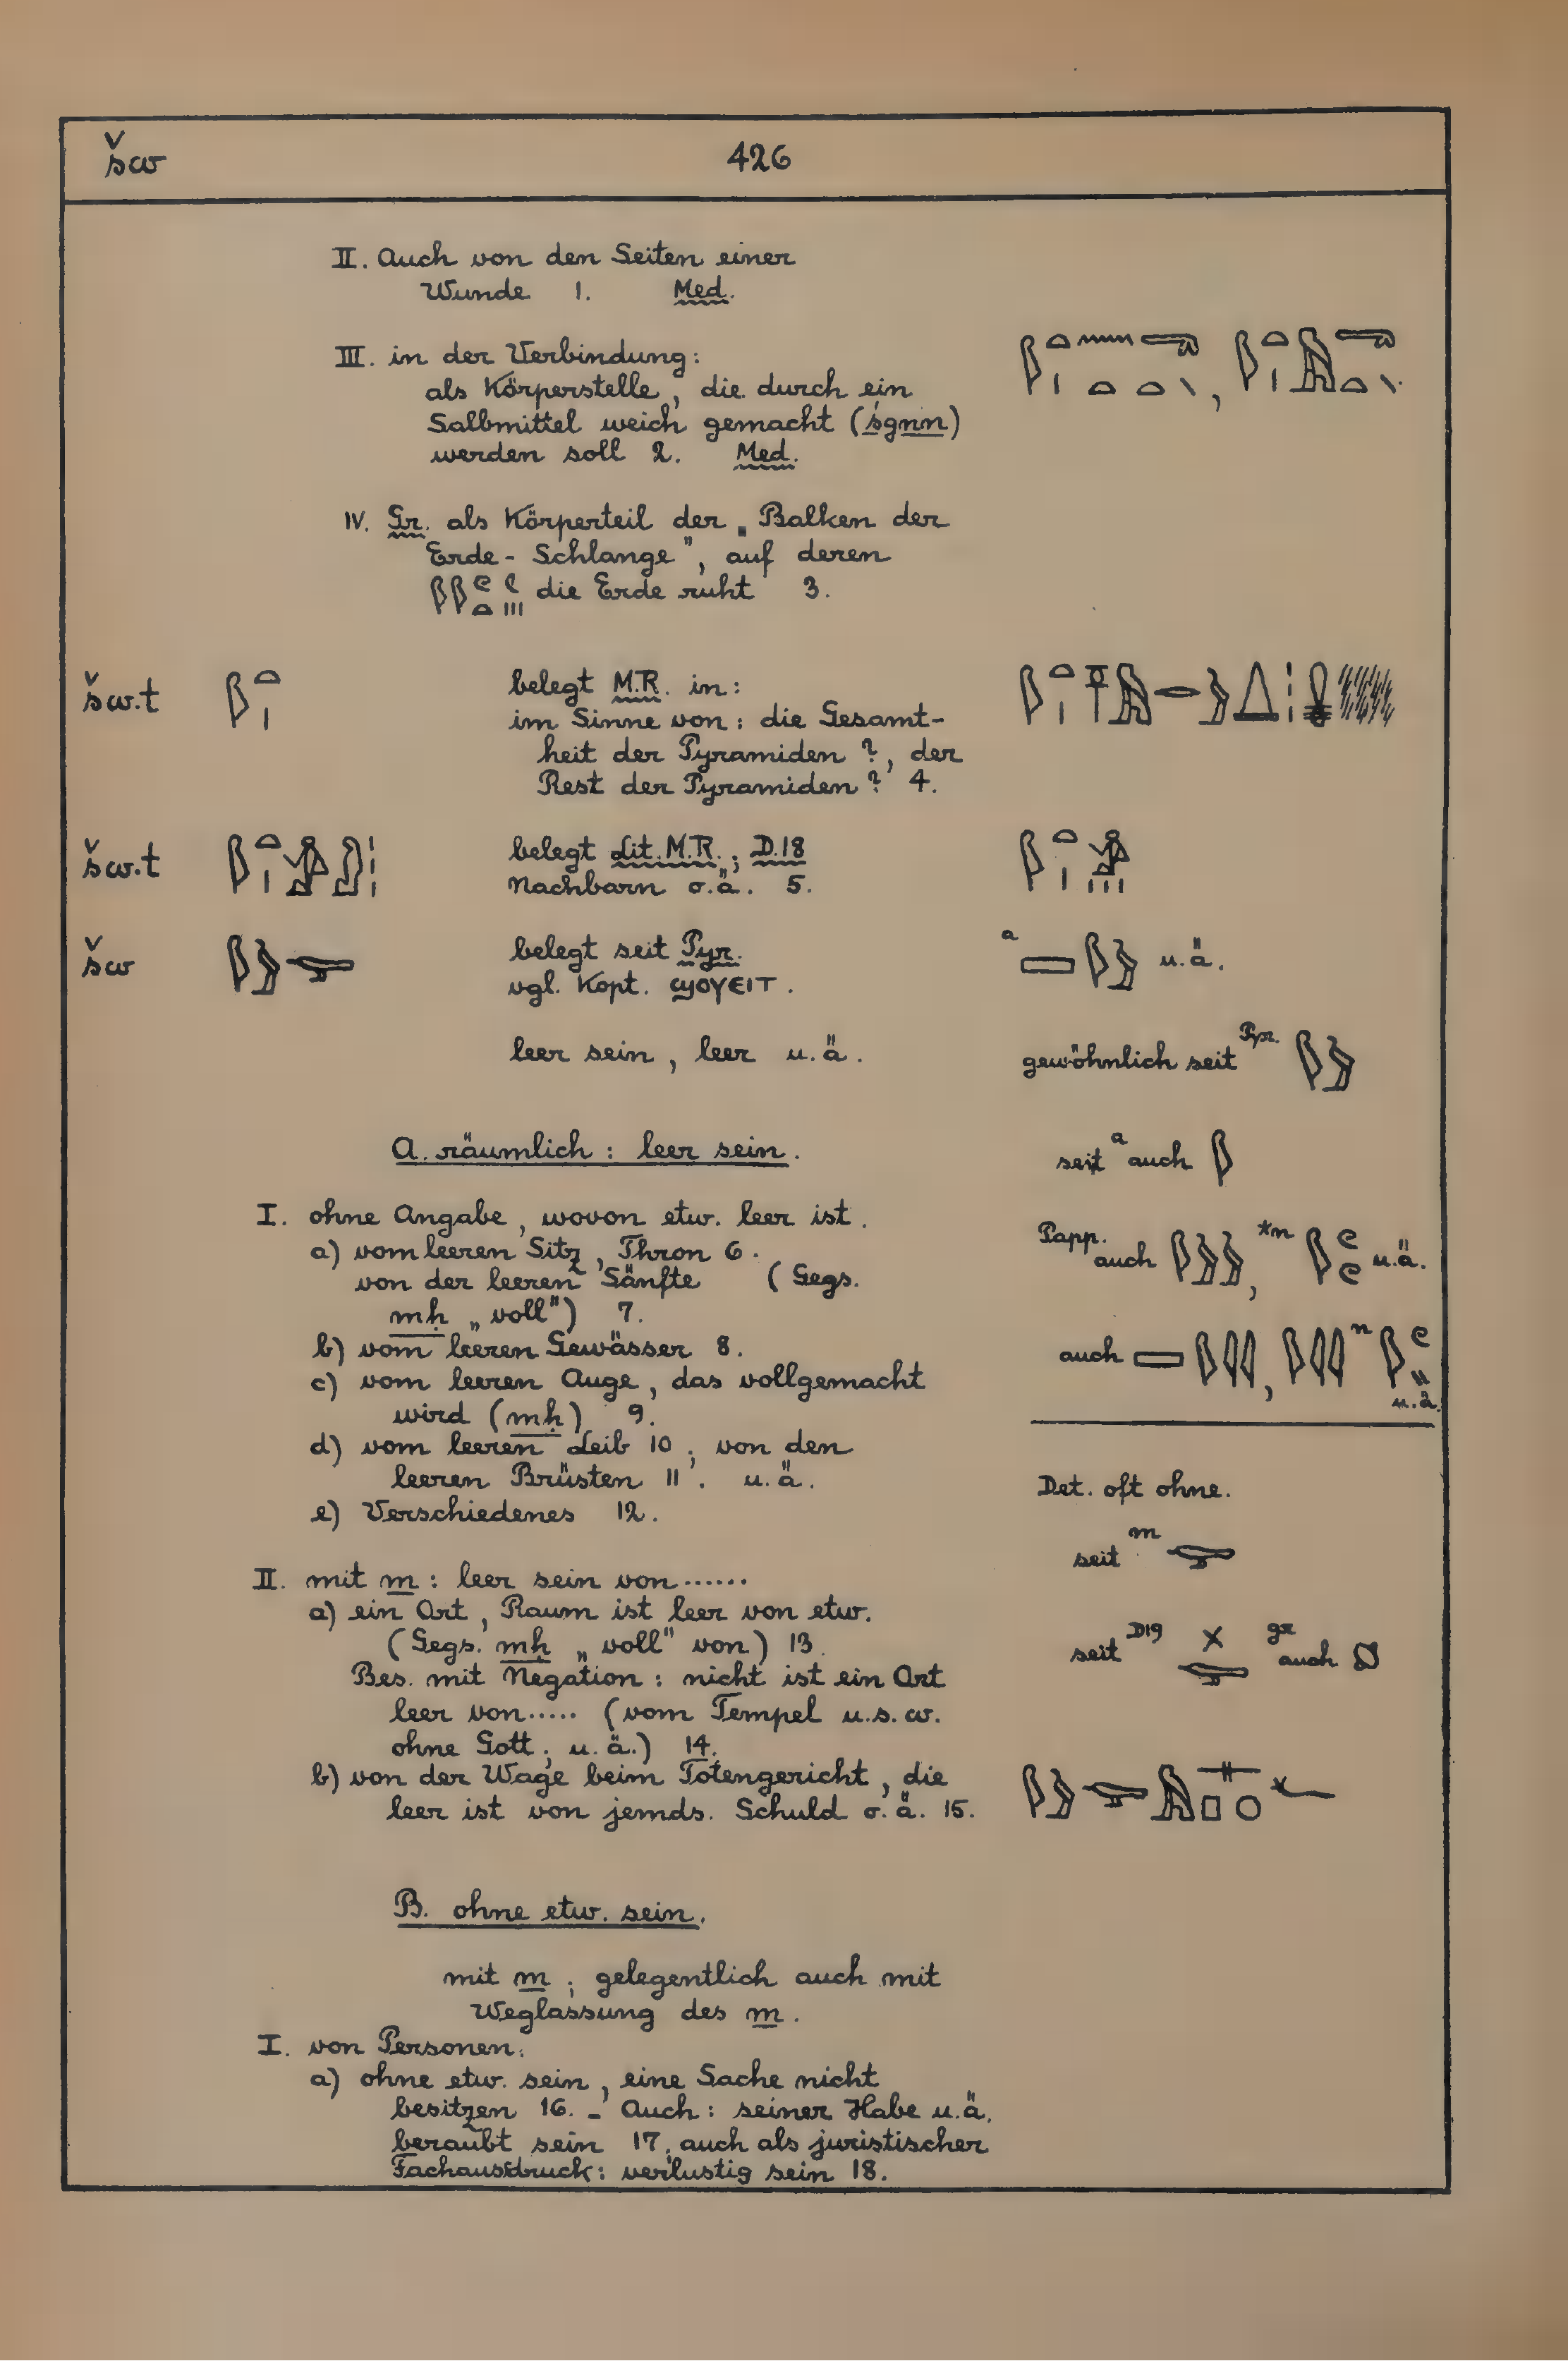 šw 426
II. Auch von den Seiten einer
Wunde 1. Med.
III. in der Verbindung:
als Körperstelle, die durch ein
Salbmittel weich gemacht (śgnn)
werden soll 2. Med.
IV. Gr. als Körperteil der „Balken der
Erde-Schlange", auf deren
die Erde ruht 3.
šw.t belegt M.R. in:
im Sinne von: die Gesamt-
heit der Pyramiden ?, der
Rest der Pyramiden ? 4.
šw.t belegt Lit. M.R.; D.18
Nachbarn o.ä. 5.
šw belegt seit Pyr. a u.ä.
vgl. Kopt. ϣⲟⲩⲉⲓⲧ.
leer sein, leer u.ä. gewöhnlich seit Pyr.
A. räumlich: leer sein.
seit a auch
I. ohne Angabe, wovon etw. leer ist.
a) vom leeren Sitz, Thron 6.
Papp. auch , *n u.ä.
von der leeren Sänfte (Gegs.
mḥ „voll") 7.
b) vom leeren Gewässer 8.
auch , n u.ä.
c) vom leeren Auge, das vollgemacht
wird (mḥ) 9.
d) vom leeren Leib 10; von den
leeren Brüsten 11. u.ä.
Det. oft ohne.
e) Verschiedenes 12.
seit m
II. mit m: leer sein von......
a) ein Ort, Raum ist leer von etw.
(Gegs. mḥ „voll" von) 13.
seit D19 gr auch
Bes. mit Negation: nicht ist ein Ort
leer von..... (vom Tempel u.s.w.
ohne Gott; u.ä.) 14.
b) von der Wage beim Totengericht, die
leer ist von jemds. Schuld o.ä. 15.
B. ohne etw. sein.
mit m; gelegentlich auch mit
Weglassung des m.
I. von Personen:
a) ohne etw. sein, eine Sache nicht
besitzen 16. – Auch: seiner Habe u.ä.
beraubt sein 17, auch als juristischer
Fachausdruck: verlustig sein 18.